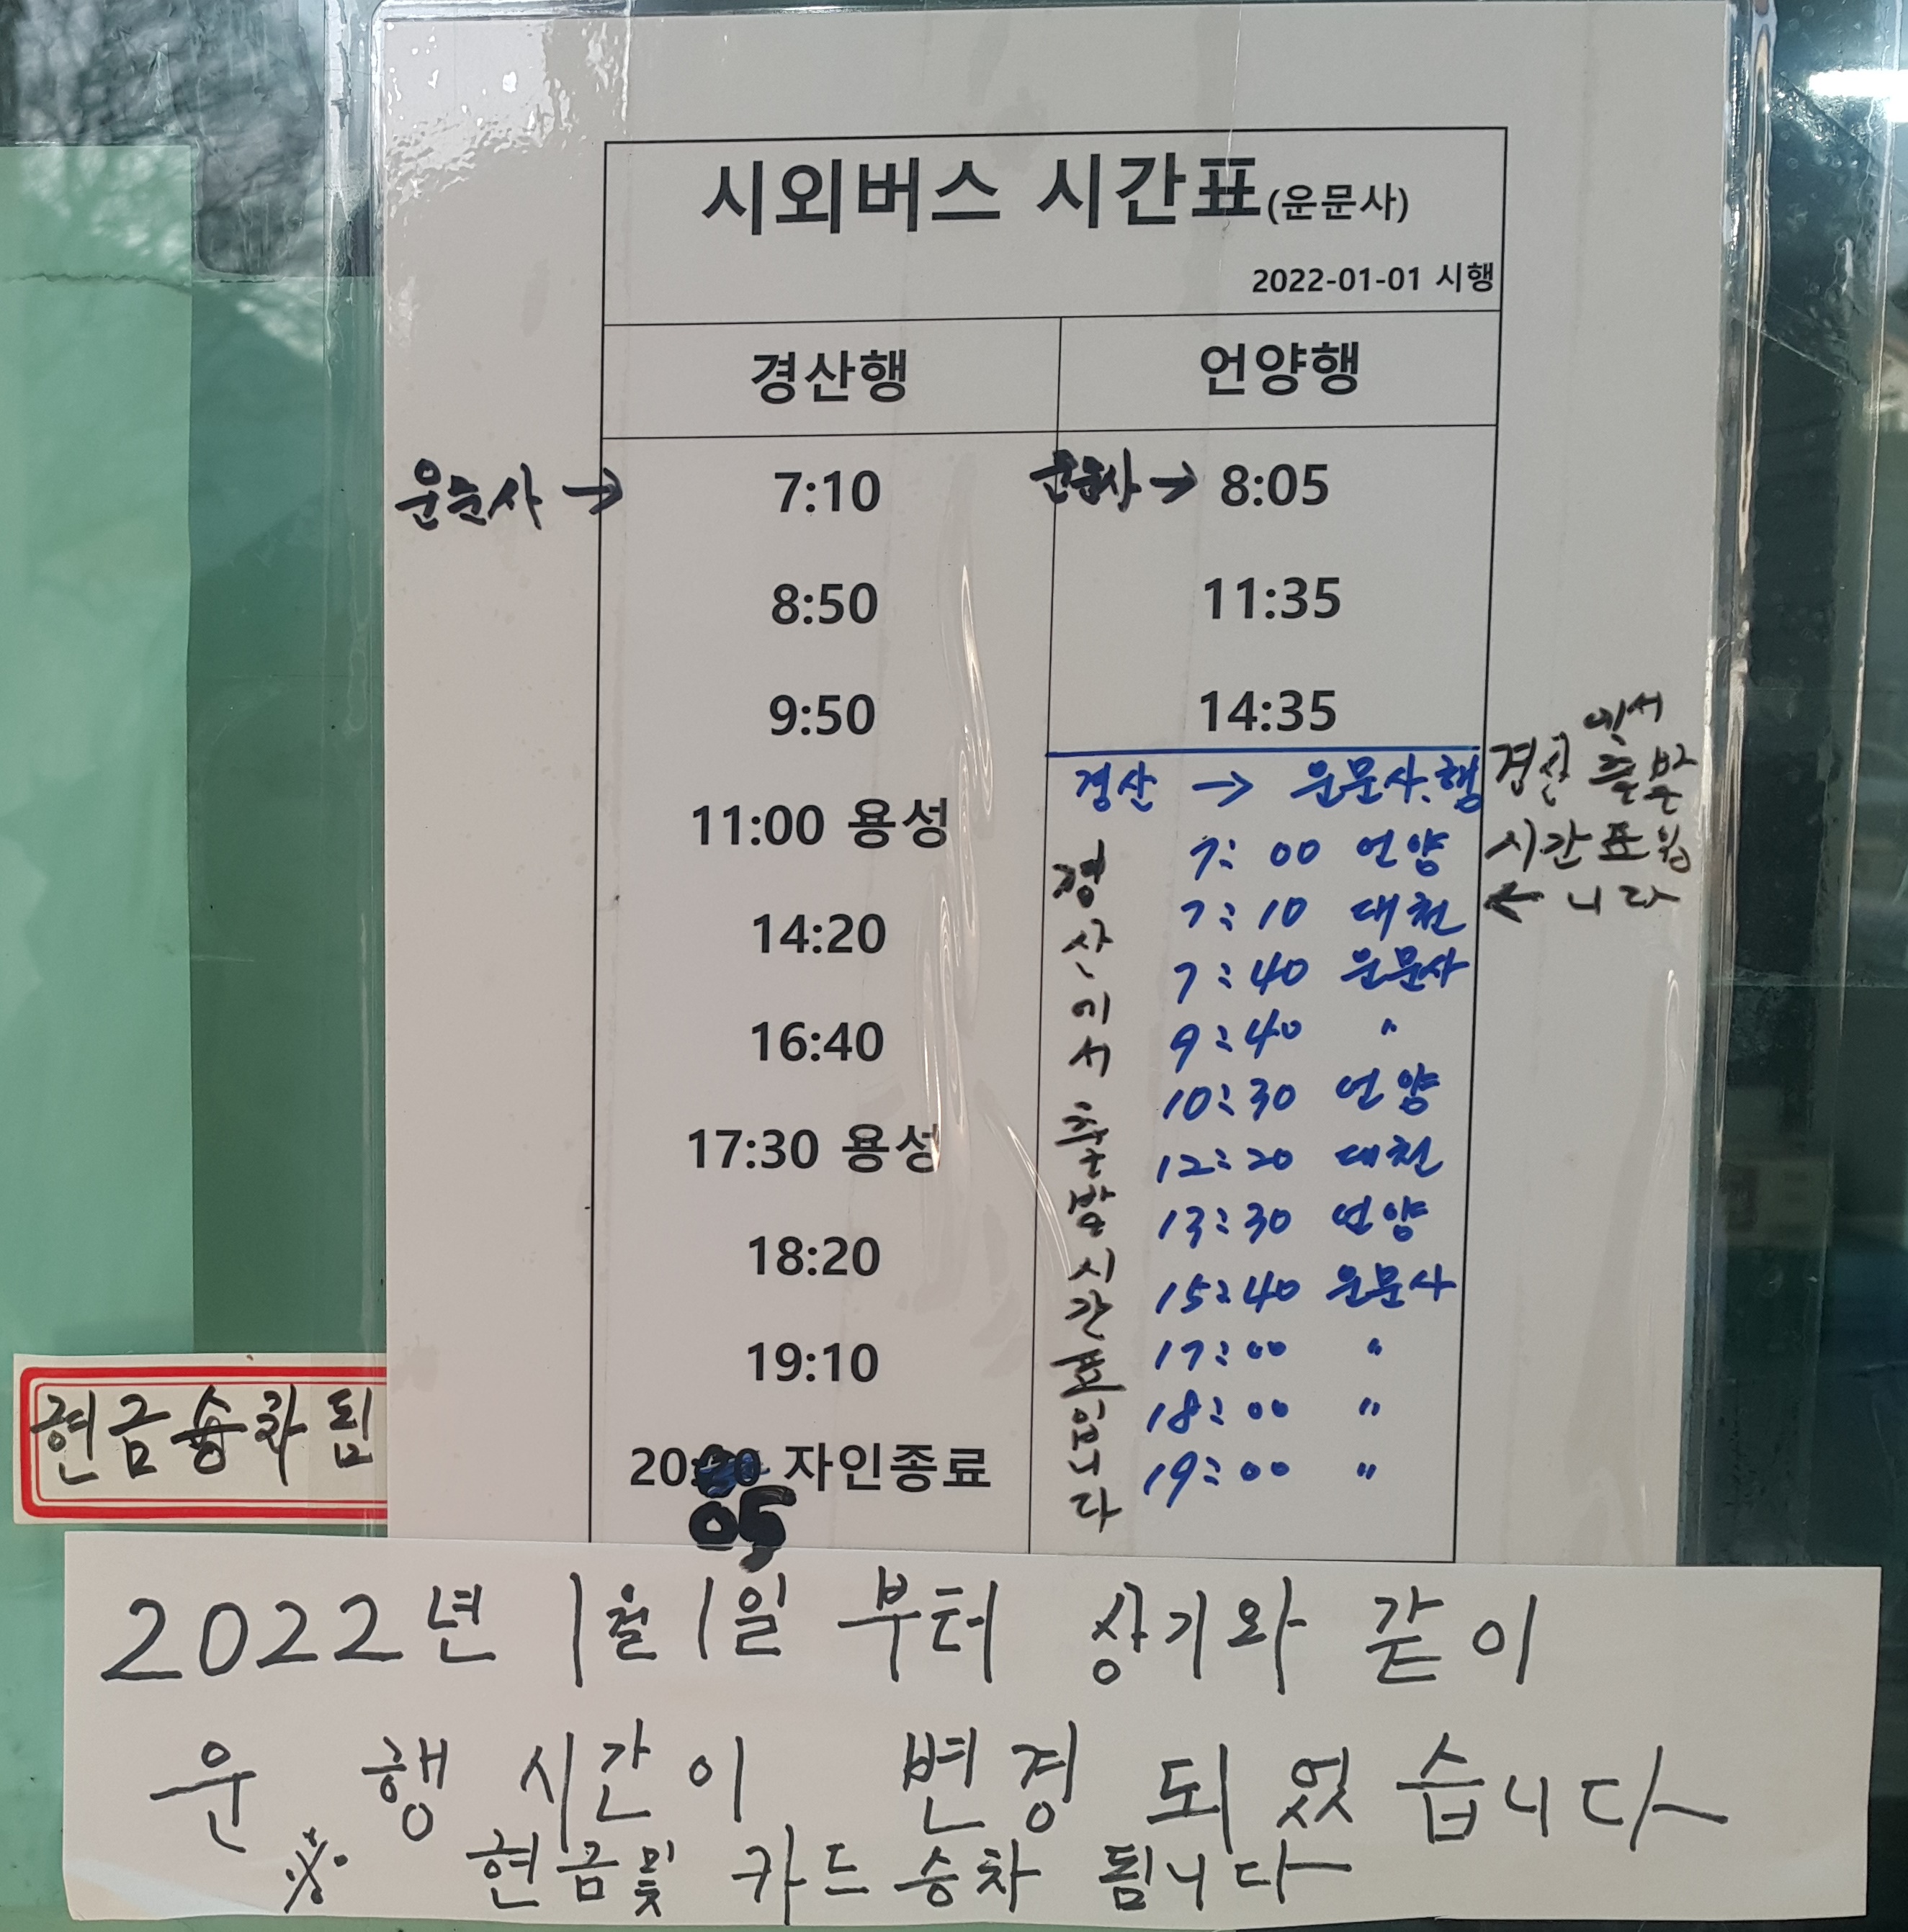 시외버스 시간표(운문사)
2022-01-01 시행
경산행
언양행
운문사 → 7:10
8:50
9:50
11:00 용성
14:20
16:40
17:30 용성
18:20
19:10
20: 자인종료
05
운문사 → 8:05
11:35
14:35
경산 → 운문사.행
7:00 언양
7:10 대천
7:40 운문사
9:40 〃
10:30 언양
12:20 대천
13:30 언양
15:40 운문사
17:00 〃
18:00 〃
19:00 〃
경산에서 출발시간표입니다
에서
경산 출발
시간표입
← 니다
현금승차됨
2022년 1월 1일 부터 상기와 같이
운행 시간이 변경 되었습니다
※ 현금및 카드 승차 됩니다